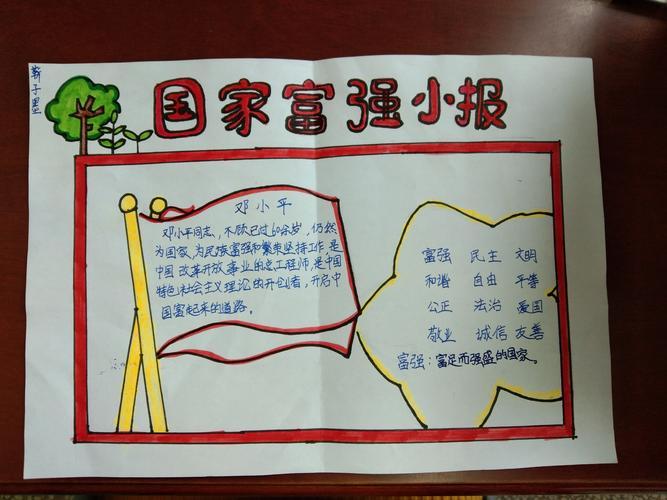 靳子墨
国家富强小报
邓小平
邓小平同志，不顾已过60余岁，仍然
为国家，为民族富强和繁荣坚持工作，是
中国改革开放事业的总工程师，是中国
特色社会主义理论的开创者，开启中
国富起来的道路。
富强 民主 文明
和谐 自由 平等
公正 法治 爱国
敬业 诚信 友善
富强：富足而强盛的国家。